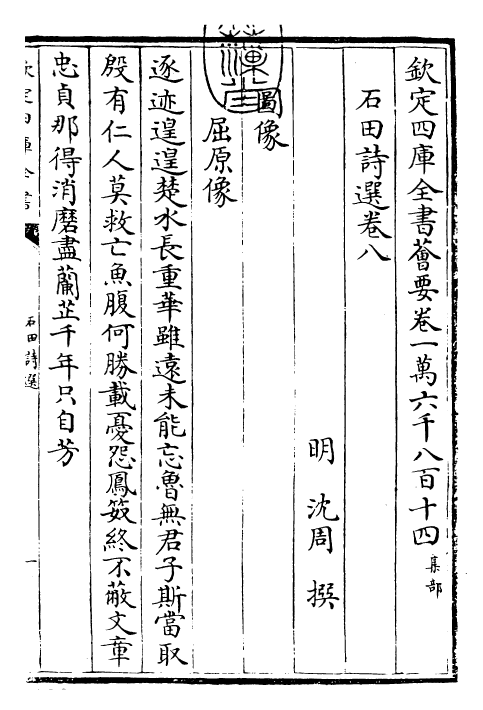 欽定四庫全書薈要卷一萬六千八百十四集部
石田詩選卷八
明沈周撰
圖像
屈原像
逐迹遑遑楚水長重華雖遠未能忘魯無君子斯當取
殷有仁人莫救亡魚腹何勝載憂怨鳳笯終不蔽文章
忠貞那得消磨盡蘭芷千年只自芳
欽定四庫全書
石田詩選
一